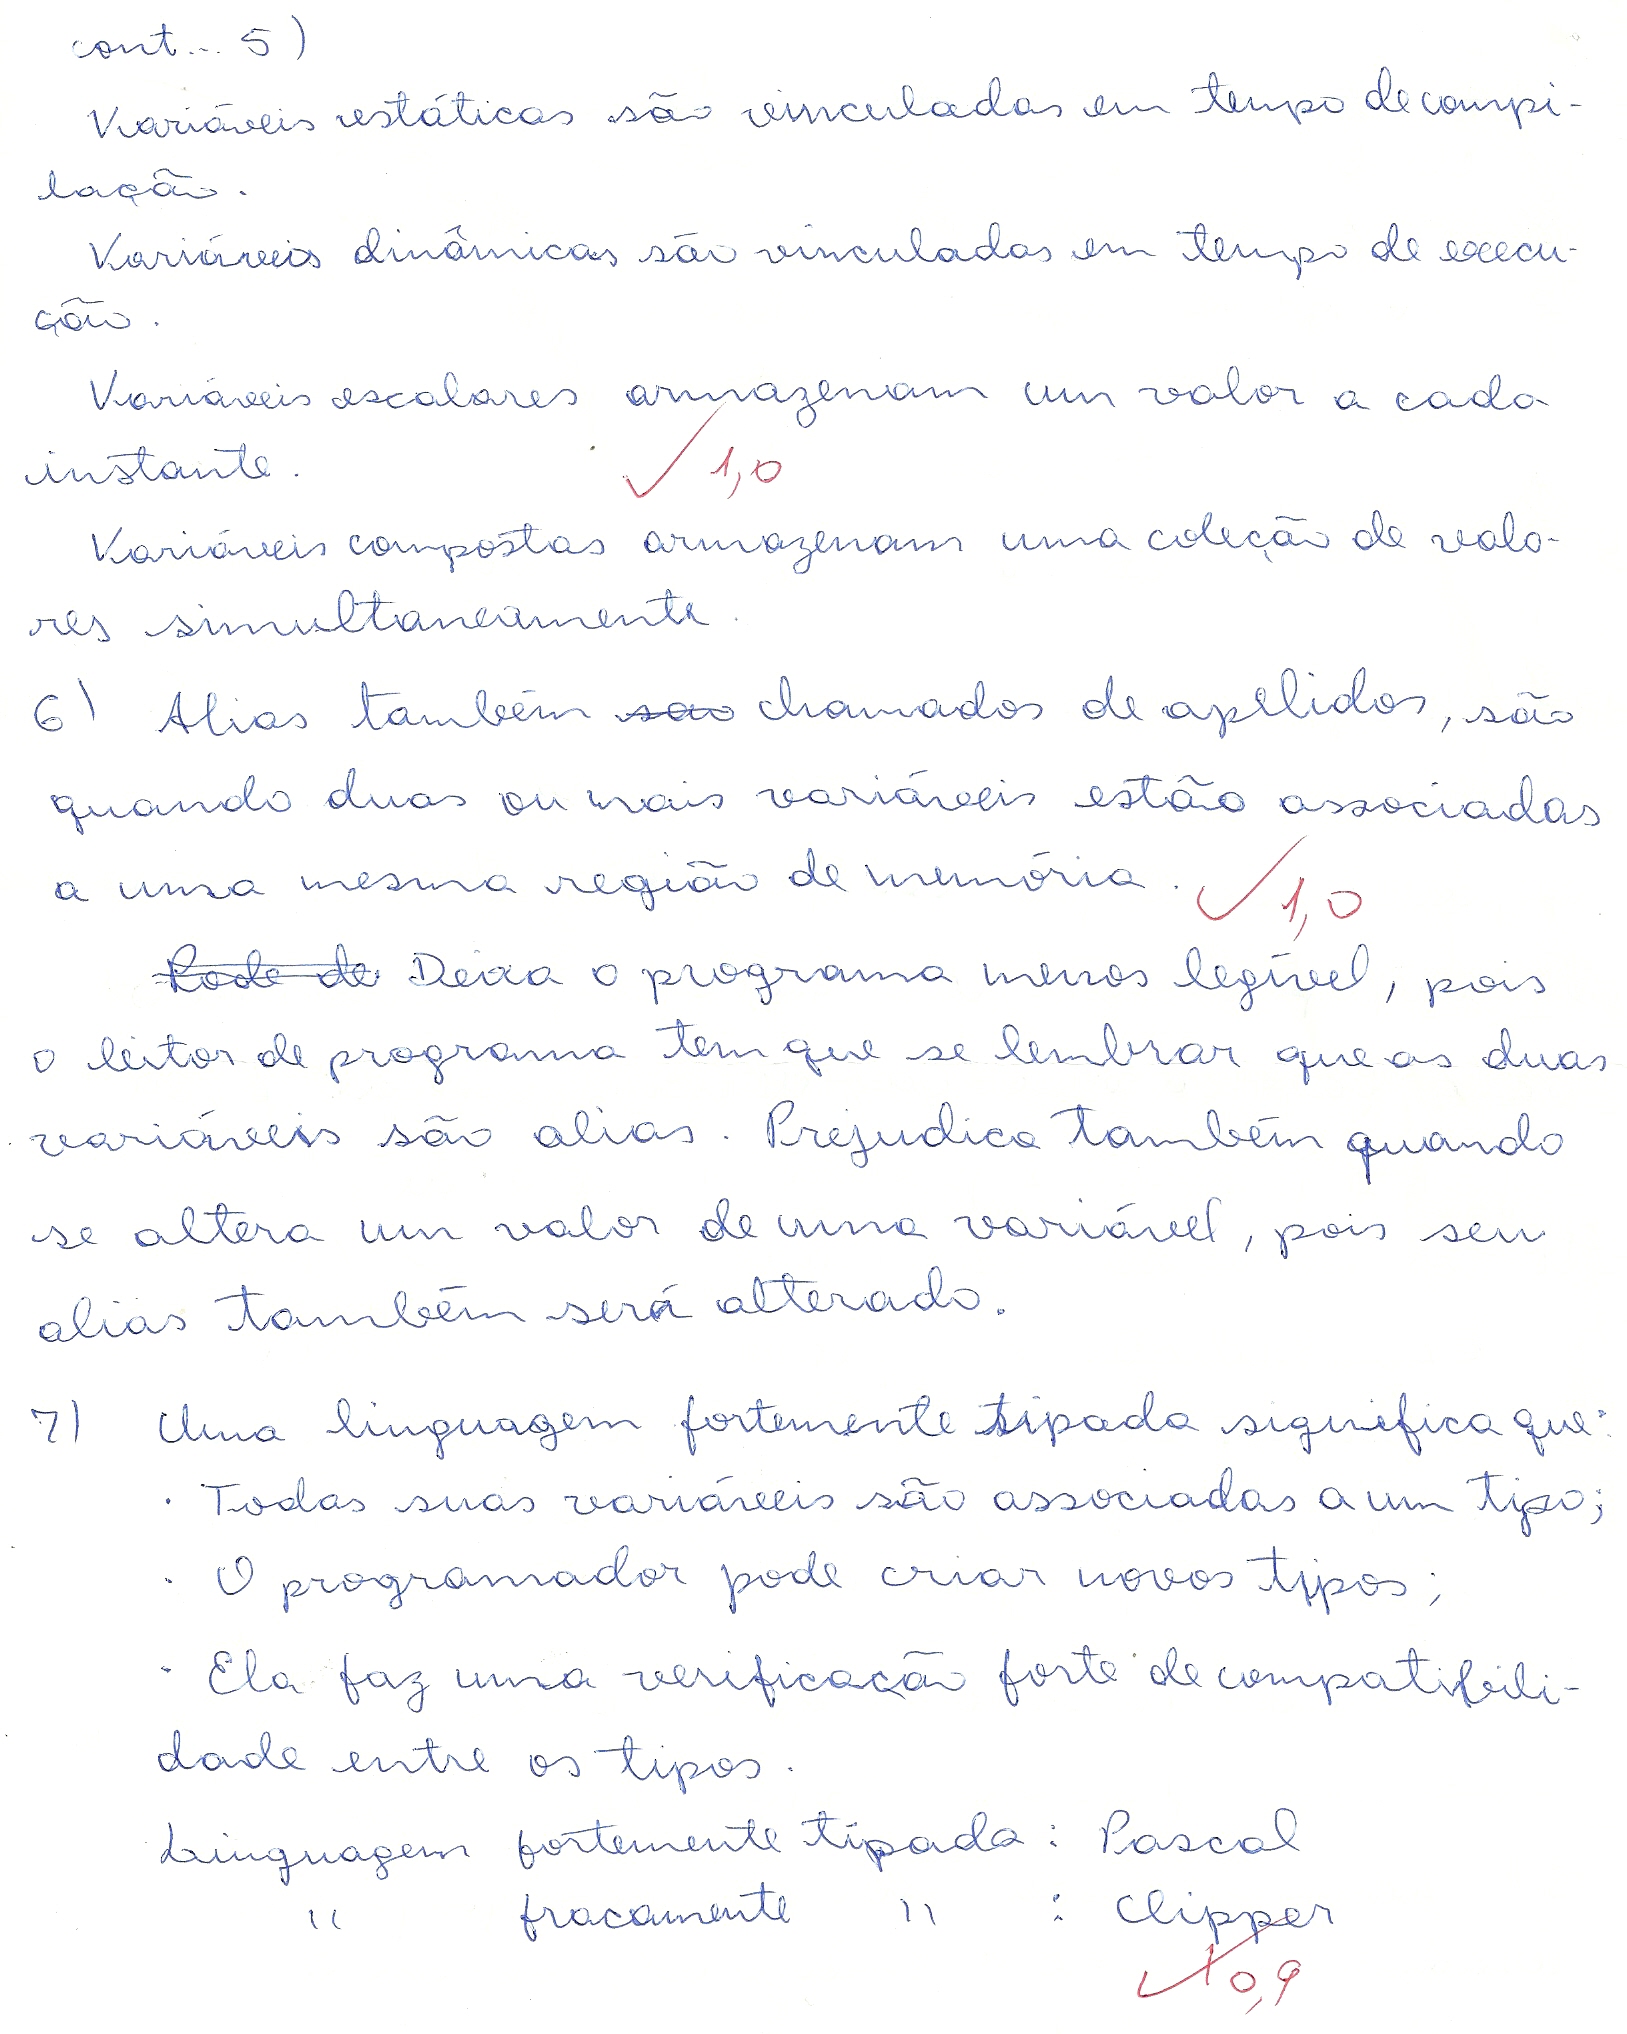 cont... 5)
Variáveis estáticas são vinculadas em tempo de compi-
lação.
Variáveis dinâmicas são vinculadas em tempo de execu-
ção.
Variáveis escalares armazenam um valor a cada
instante.
✓ 1,0
Variáveis compostas armazenam uma coleção de valo-
res simultaneamente.
6) Alias também sao chamados de apelidos, são
quando duas ou mais variáveis estão associadas
a uma mesma região de memória. ✓ 1,0
Pode de Deixa o programa menos legível, pois
o leitor de programa tem que se lembrar que as duas
variáveis são alias. Prejudica também quando
se altera um valor de uma variável, pois seu
alias também será alterado.
7) Uma linguagem fortemente tipada significa que:
· Todas suas variáveis são associadas a um tipo;
· O programador pode criar novos tipos;
· Ela faz uma verificação forte de compatibili-
dade entre os tipos.
Linguagem fortemente tipada: Pascal
" fracamente " : Clipper
✓ 0,9